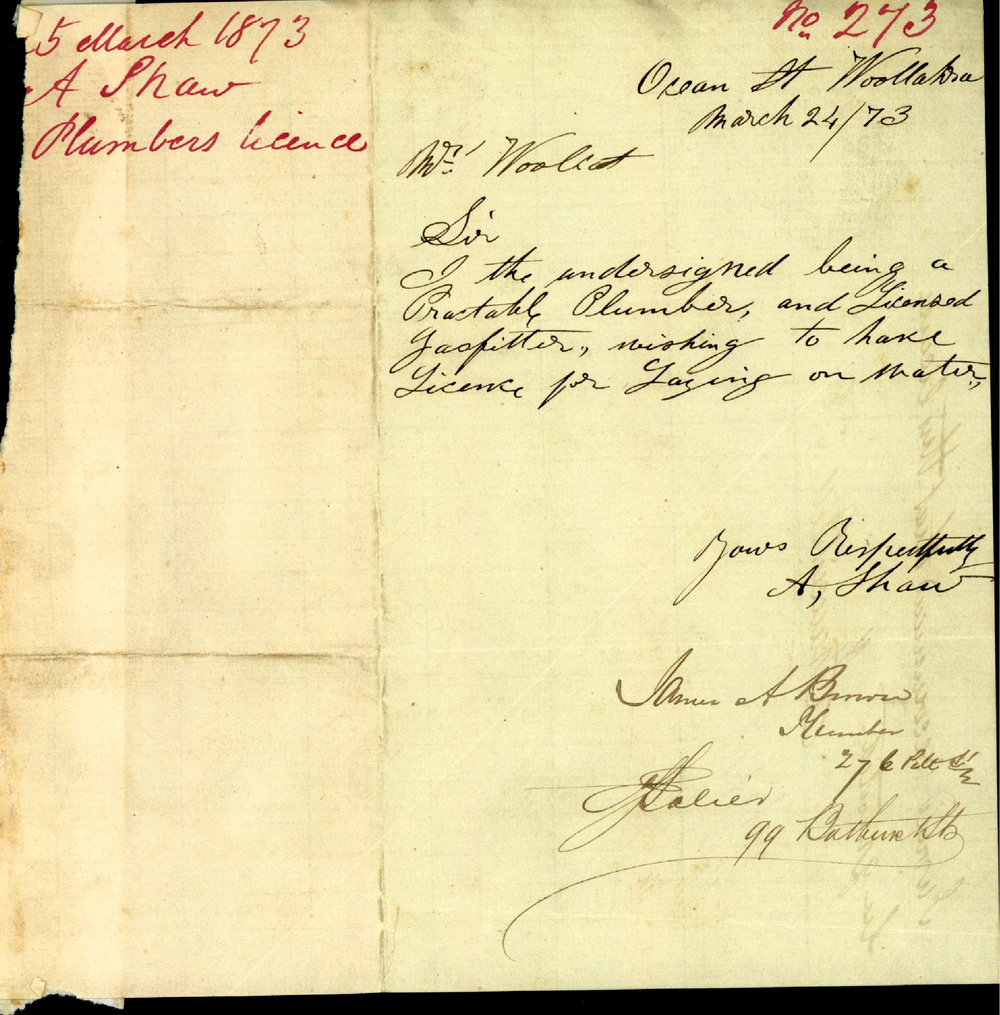 25 March 1873
A Shaw
Plumbers licence
No 273
Ocean St Woollahra
March 24/73
Mr. Woollcot
Sir
I the undersigned being a
Practable Plumber, and Licensed
Gasfitter., wishing to have
Licence for Laying on Water.,
Yours Respectfully
A, Shaw
James A Brown
Plumber
276 Pitt St
99 Bathurst St